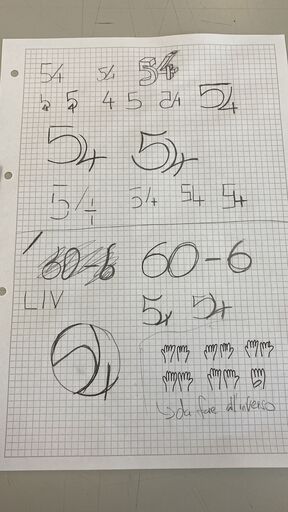 54 54 54
5 5 4 5 54 54
54 54
5/4 54 54 54
60-6 60-6
LIV 54 54
54
da fare all'inverso